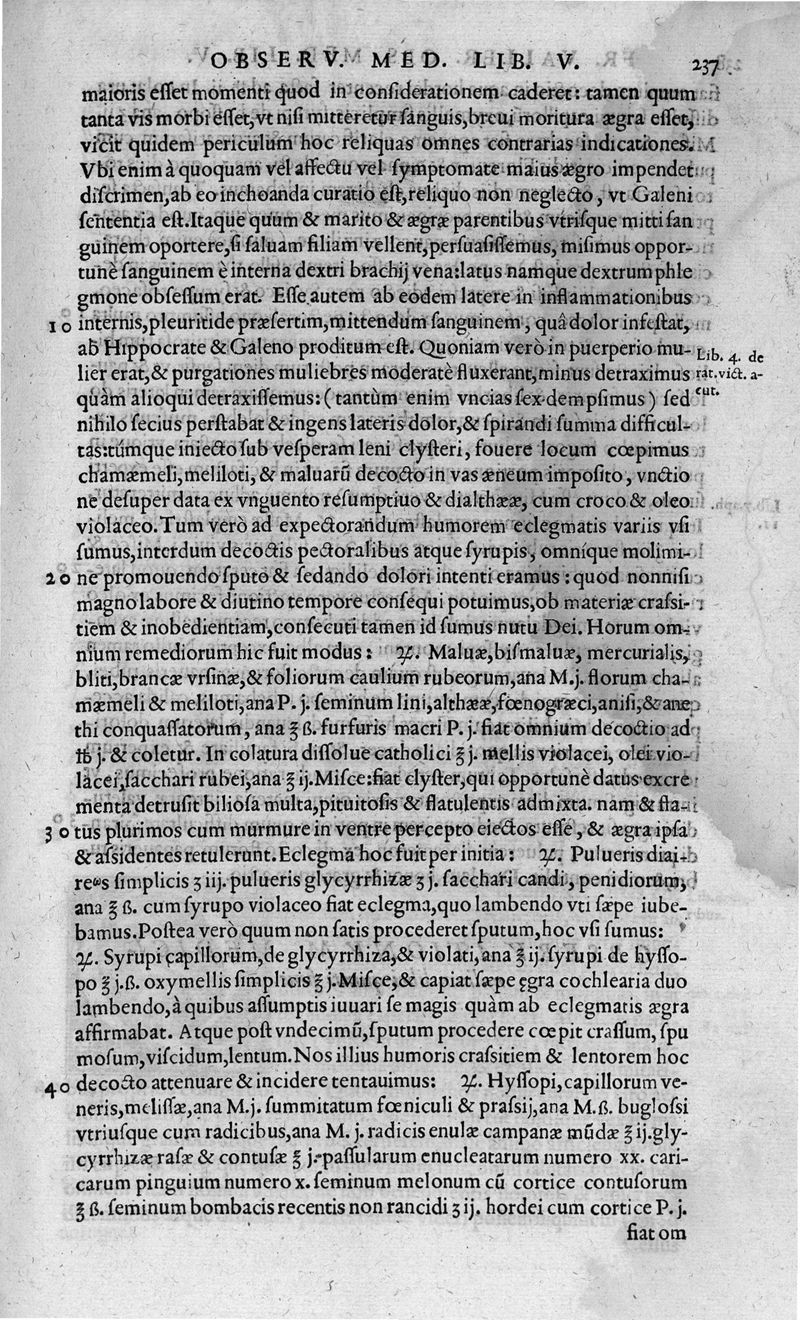 OBSERV. MED. LIB. V. 237
maioris eſſet momenti quod in conſiderationem caderet: tamen quum
tanta vis morbi eſſet, vt niſi mitteretur ſanguis, breui moritura ægra eſſet,
vicit quidem periculum hoc reliquas omnes contrarias indicationes.
Vbi enim à quoquam vel affectu vel ſymptomate maius ægro impendet
diſcrimen, ab eo inchoanda curatio eſt, reliquo non neglecto, vt Galeni
ſententia eſt. Itaque quum & marito & ægræ parentibus vtriſque mitti ſan
guinem oportere, ſi ſaluam filiam vellent, perſuaſiſſemus, miſimus oppor-
tunè ſanguinem è interna dextri brachij vena: latus namque dextrum phle
gmone obſeſſum erat. Eſſe autem ab eodem latere in inflammationibus
10 internis, pleuritide præſertim, mittendum ſanguinem, quâ dolor infeſtat,
ab Hippocrate & Galeno proditum eſt. Quoniam verò in puerperio mu-
Lib. 4. de
lier erat, & purgationes muliebres moderatè fluxerant, minus detraximus
rat. vict. a-
quàm alioqui detraxiſſemus: (tantùm enim vncias ſex dempſimus) ſed
cut.
nihilo ſecius perſtabat & ingens lateris dolor, & ſpirandi ſumma difficul-
tas: túmque iniecto ſub veſperam leni clyſteri, fouere locum cœpimus
chamæmeli, meliloti, & maluarũ decocto in vas æneum impoſito, vnctio
ne deſuper data ex vnguento reſumptiuo & dialthææ, cum croco & oleo
violaceo. Tum verò ad expectorandum humorem eclegmatis variis vſi
ſumus, interdum decoctis pectoralibus atque ſyrupis, omníque molimi-
20 ne promouendo ſputo & ſedando dolori intenti eramus: quod nonniſi
magno labore & diutino tempore conſequi potuimus, ob materiæ craſsi-
tiem & inobedientiam, conſecuti tamen id ſumus nutu Dei. Horum om-
nium remediorum hic fuit modus: ℞. Maluæ, biſmaluæ, mercurialis,
bliti, brancæ vrſinæ, & foliorum caulium rubeorum, ana M. j. florum cha-
mæmeli & meliloti, ana P. j. ſeminum lini, althææ, fœnogræci, aniſi, & ane
thi conquaſſatorum, ana ℥ ß. furfuris macri P. j. fiat omnium decoctio ad
℔ j. & coletur. In colatura diſſolue catholici ℥ j. mellis violacei, olei vio-
lacei, ſacchari rubei, ana ℥ ij. Miſce: fiat clyſter, qui opportunè datus excre
menta detruſit bilioſa multa, pituitoſis & flatulentis admixta. nam & fla-
30 tus plurimos cum murmure in ventre percepto eiectos eſſe, & ægra ipſa
& aſsidentes retulerunt. Eclegma hoc fuit per initia: ℞. Pulueris diai-
reωs ſimplicis ʒ iij. pulueris glycyrrhizæ ʒ j. ſacchari candi, penidiorum,
ana ℥ ß. cum ſyrupo violaceo fiat eclegma, quo lambendo vti ſæpe iube-
bamus. Poſtea verò quum non ſatis procederet ſputum, hoc vſi ſumus:
℞. Syrupi capillorum, de glycyrrhiza, & violati, ana ℥ ij. ſyrupi de hyſſo-
po ℥ j. ß. oxymellis ſimplicis ℥ j. Miſce, & capiat ſæpe ęgra cochlearia duo
lambendo, à quibus aſſumptis iuuari ſe magis quàm ab eclegmatis ægra
affirmabat. Atque poſt vndecimũ, ſputum procedere cœpit craſſum, ſpu
moſum, viſcidum, lentum. Nos illius humoris craſsitiem & lentorem hoc
40 decocto attenuare & incidere tentauimus: ℞. Hyſſopi, capillorum ve-
neris, meliſſæ, ana M. j. ſummitatum fœniculi & praſsij, ana M. ß. bugloſsi
vtriuſque cum radicibus, ana M. j. radicis enulæ campanæ mũdæ ℥ ij. gly-
cyrrhizæ raſæ & contuſæ ℥ j. paſſularum enucleatarum numero xx. cari-
carum pinguium numero x. ſeminum melonum cũ cortice contuſorum
℥ ß. ſeminum bombacis recentis non rancidi ʒ ij. hordei cum cortice P. j.
fiat om